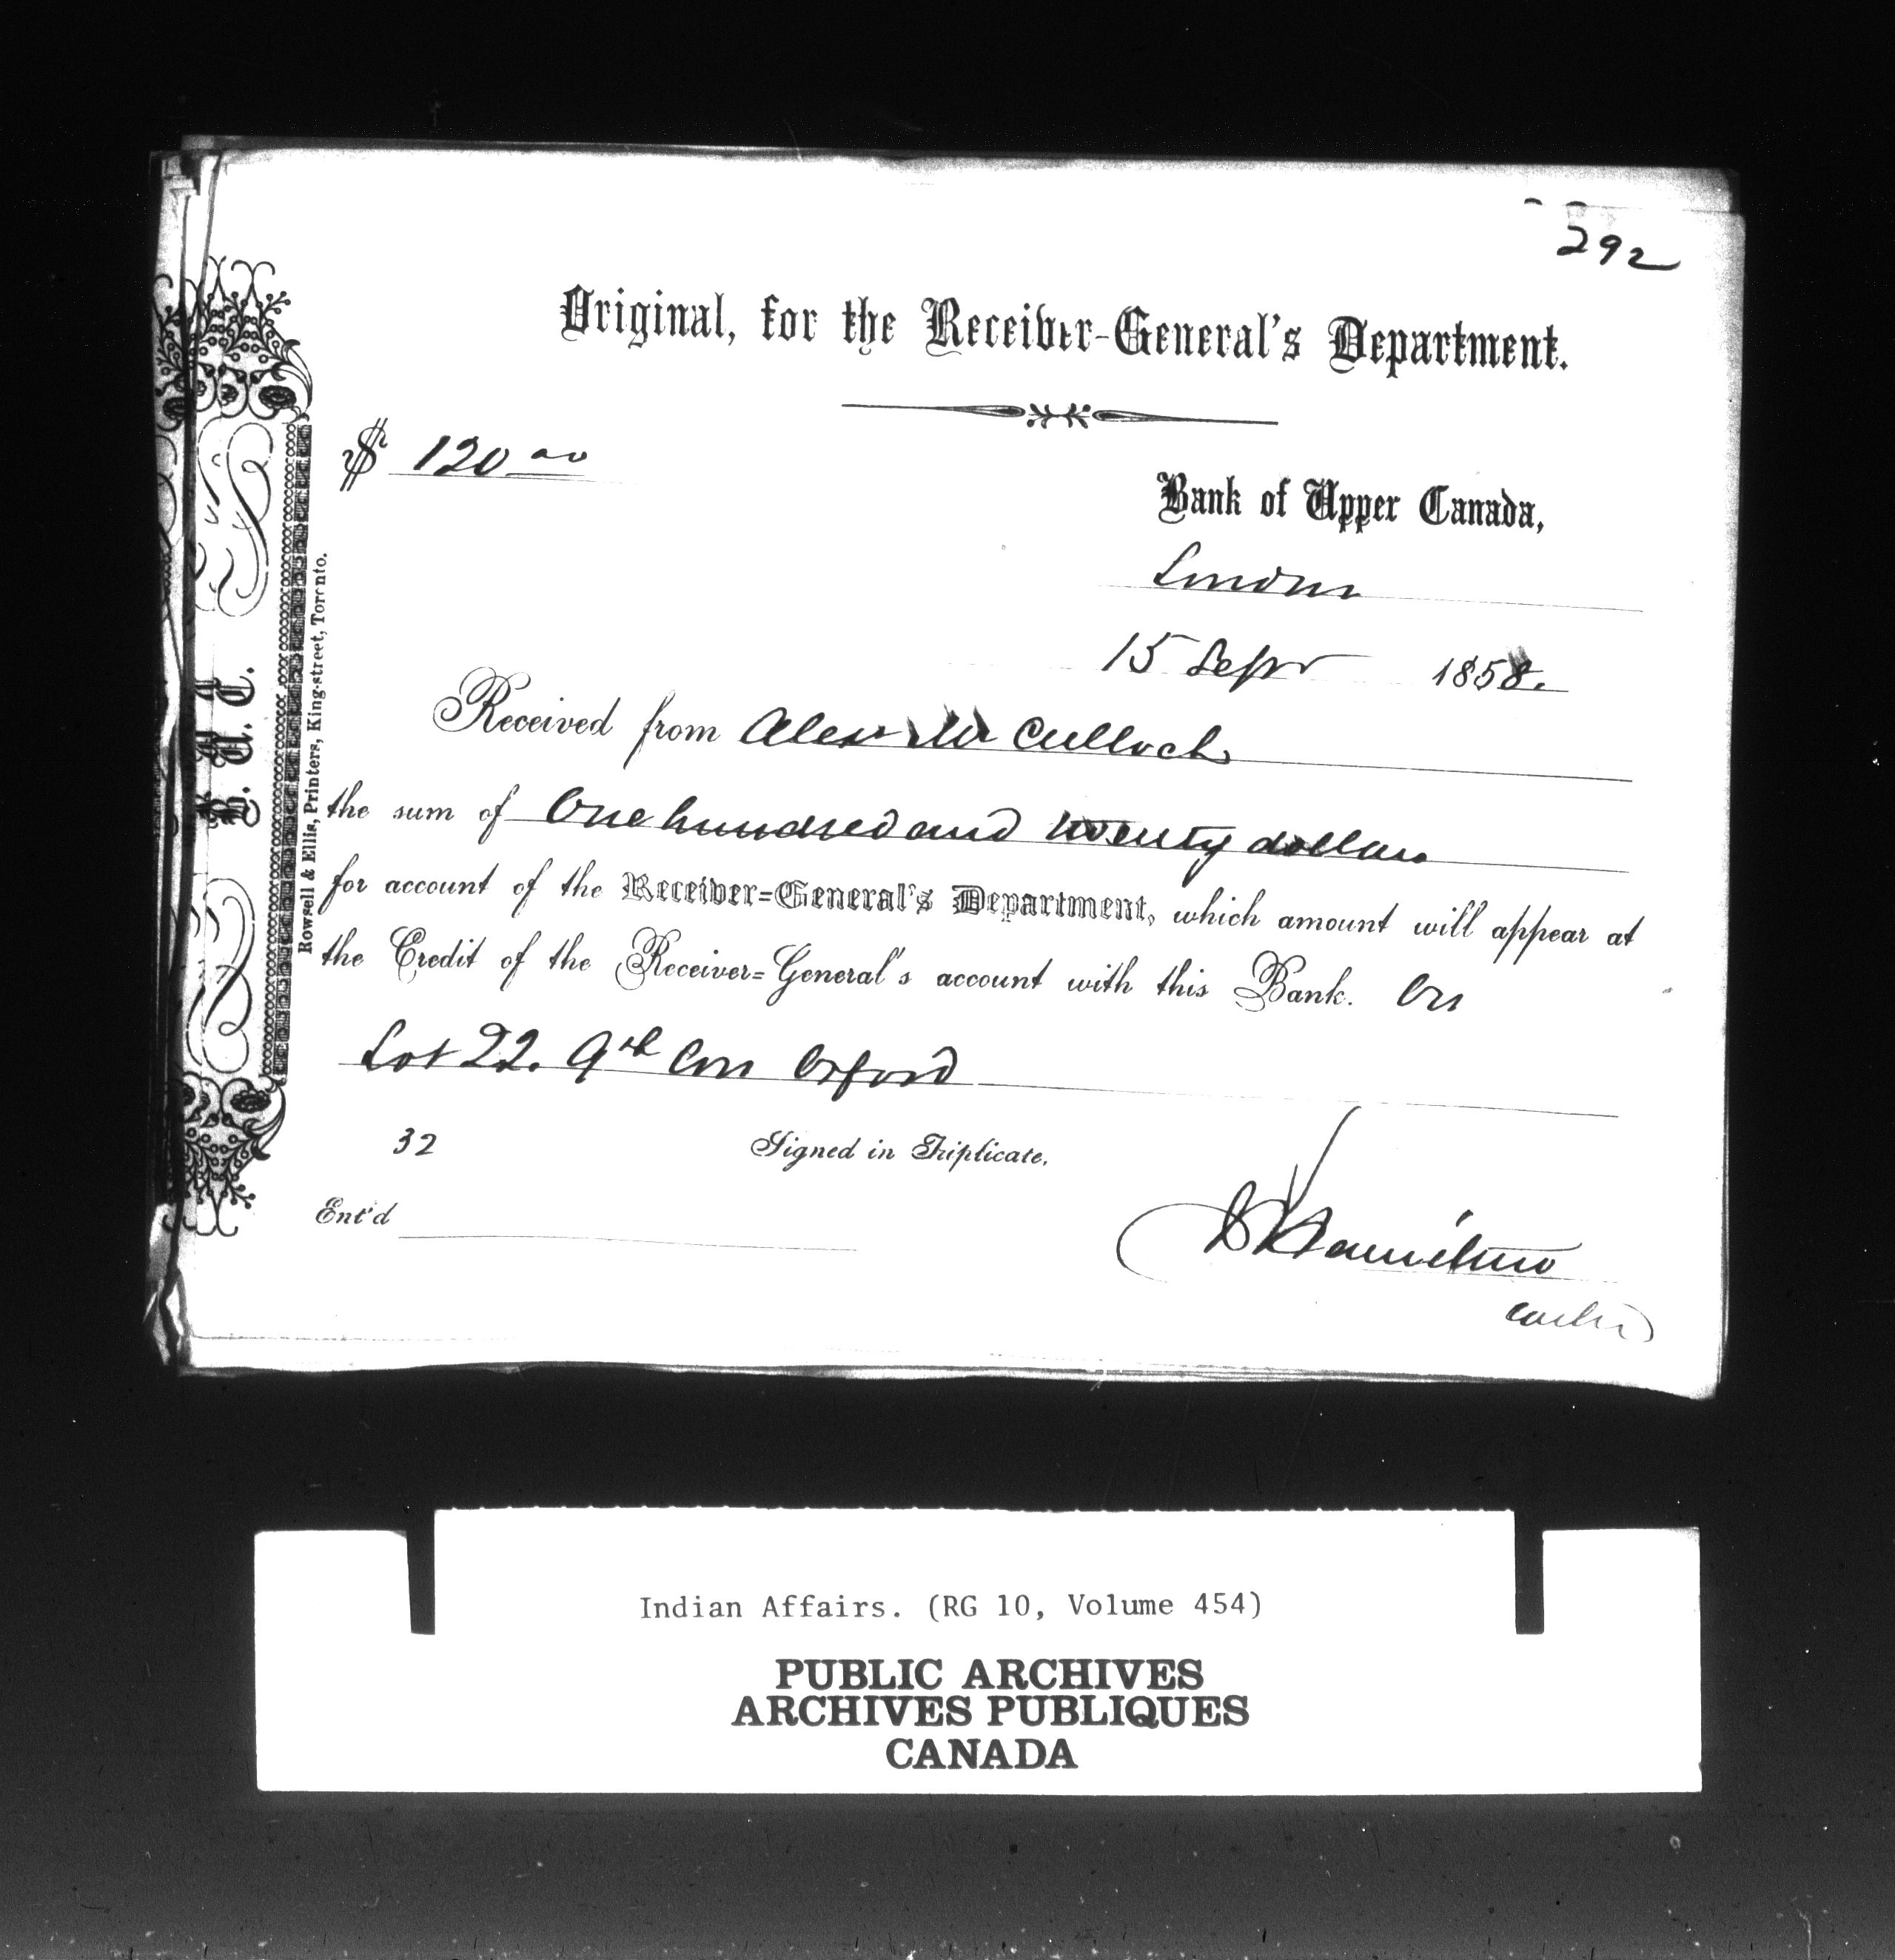 292
Original, for the Receiver-General's Department.
$ 120 00
Bank of Upper Canada,
London
15 Sepr 1858.
Received from Alexr McCulloch
the sum of One hundred and twenty dollars
for account of the Receiver-General's Department, which amount will appear at
the Credit of the Receiver-General's account with this Bank. On
Lot 22. 9th Con Oxford
32
Signed in Triplicate.
Ent'd
Hamilton
B. U. C.
Rowsell & Ellis, Printers, King-street, Toronto.
Indian Affairs. (RG 10, Volume 454)
PUBLIC ARCHIVES
ARCHIVES PUBLIQUES
CANADA